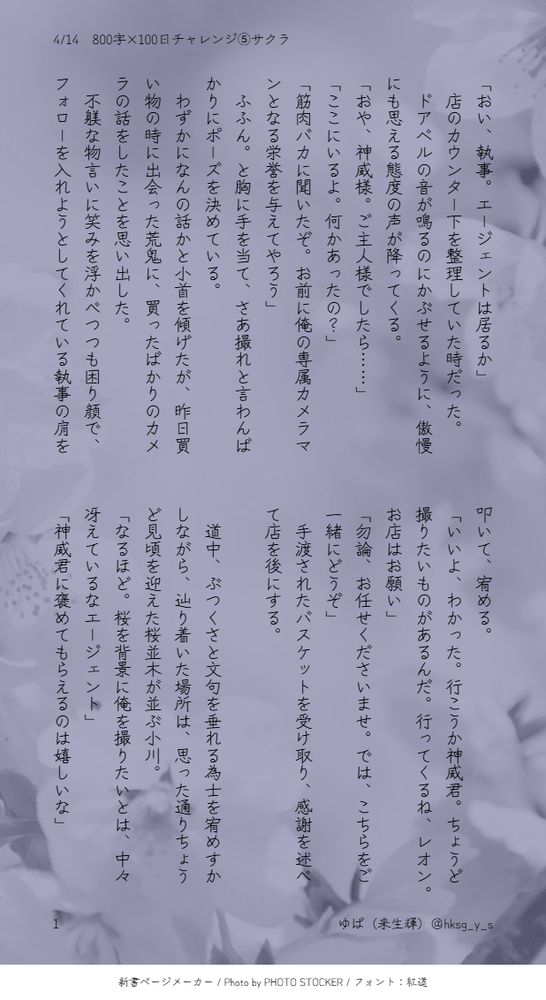 4/14　800字×100日チャレンジ⑤サクラ
「おい、執事。エージェントは居るか」
　店のカウンター下を整理していた時だった。
　ドアベルの音が鳴るのにかぶせるように、傲慢
にも思える態度の声が降ってくる。
「おや、神威様。ご主人様でしたら……」
「ここにいるよ。何かあったの？」
「筋肉バカに聞いたぞ。お前に俺の専属カメラマ
ンとなる栄誉を与えてやろう」
　ふふん。と胸に手を当て、さあ撮れと言わんば
かりにポーズを決めている。
　わずかになんの話かと小首を傾げたが、昨日買
い物の時に出会った荒鬼に、買ったばかりのカメ
ラの話をしたことを思い出した。
　不躾な物言いに笑みを浮かべつつも困り顔で、
フォローを入れようとしてくれている執事の肩を
叩いて、宥める。
「いいよ、わかった。行こうか神威君。ちょうど
撮りたいものがあるんだ。行ってくるね、レオン。
お店はお願い」
「勿論、お任せくださいませ。では、こちらをご
一緒にどうぞ」
　手渡されたバスケットを受け取り、感謝を述べ
て店を後にする。
　道中、ぶつくさと文句を垂れる為士を宥めすか
しながら、辿り着いた場所は、思った通りちょう
ど見頃を迎えた桜並木が並ぶ小川。
「なるほど。桜を背景に俺を撮りたいとは、中々
冴えているなエージェント」
「神威君に褒めてもらえるのは嬉しいな」
1
ゆぱ（来生輝）@hksg_y_s
新書ページメーカー / Photo by PHOTO STOCKER / フォント：紅道